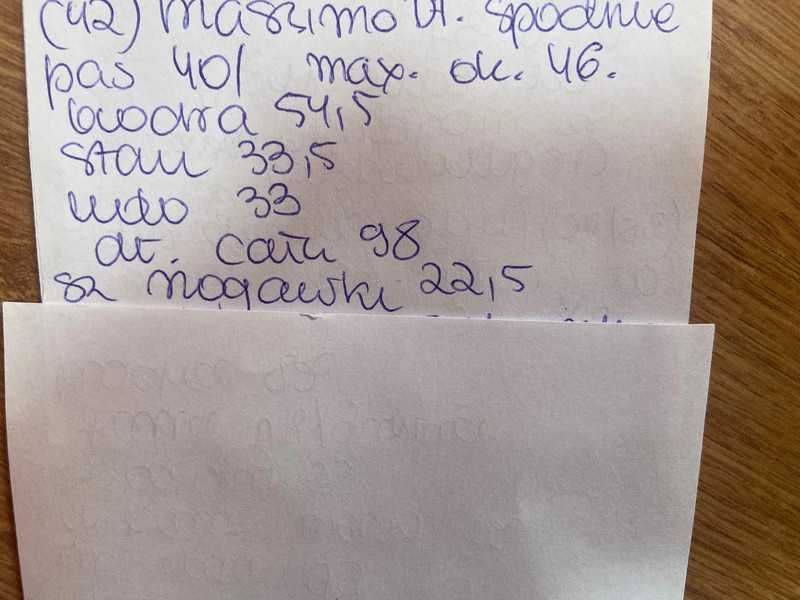 (42) Massimo D. spodnie
pas 40/ max. ok. 46.
biodra 54,5
stan 33,5
udo 33
dł. całk 98
sz nogawki 22,5